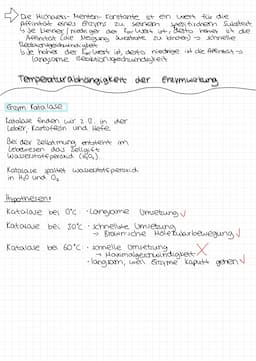 Die Michaelis-Menten-Konstante ist ein Wert für die
Affinität eines Enzyms zu seinem spezifischen Substrat
↳ je kleiner/niedriger der Km Wert ist, desto höher ist die
Affinität (die Neigung Substrate zu binden) → schnelle
Reaktionsgeschwindigkeit
↳ je höher der Km Wert ist, desto niedriger ist die Affinität →
langsame Reaktionsgeschwindigkeit
Temperaturabhängigkeit der Enzymwirkung
Enzym Katalase
Katalase finden wir z.B. in der
Leber, Kartoffeln und Hefe.
Bei der Zellatmung entsteht im
Lebewesen das Zellgift
Wasserstoffperoxid (H₂O₂)
Katalase spaltet Wasserstoffperoxid
in H₂O und O₂
Hypothesen:
Katalase bei 0°C: · langsame Umsetzung ✓
Katalase bei 30°C: · schnellste Umsetzung
→ Brown'sche Molekularbewegung ✓
Katalase bei 60°C: · schnelle Umsetzung
→ Maximalgeschwindigkeit ✗
· langsam, weil Enzyme kaputt gehen ✓